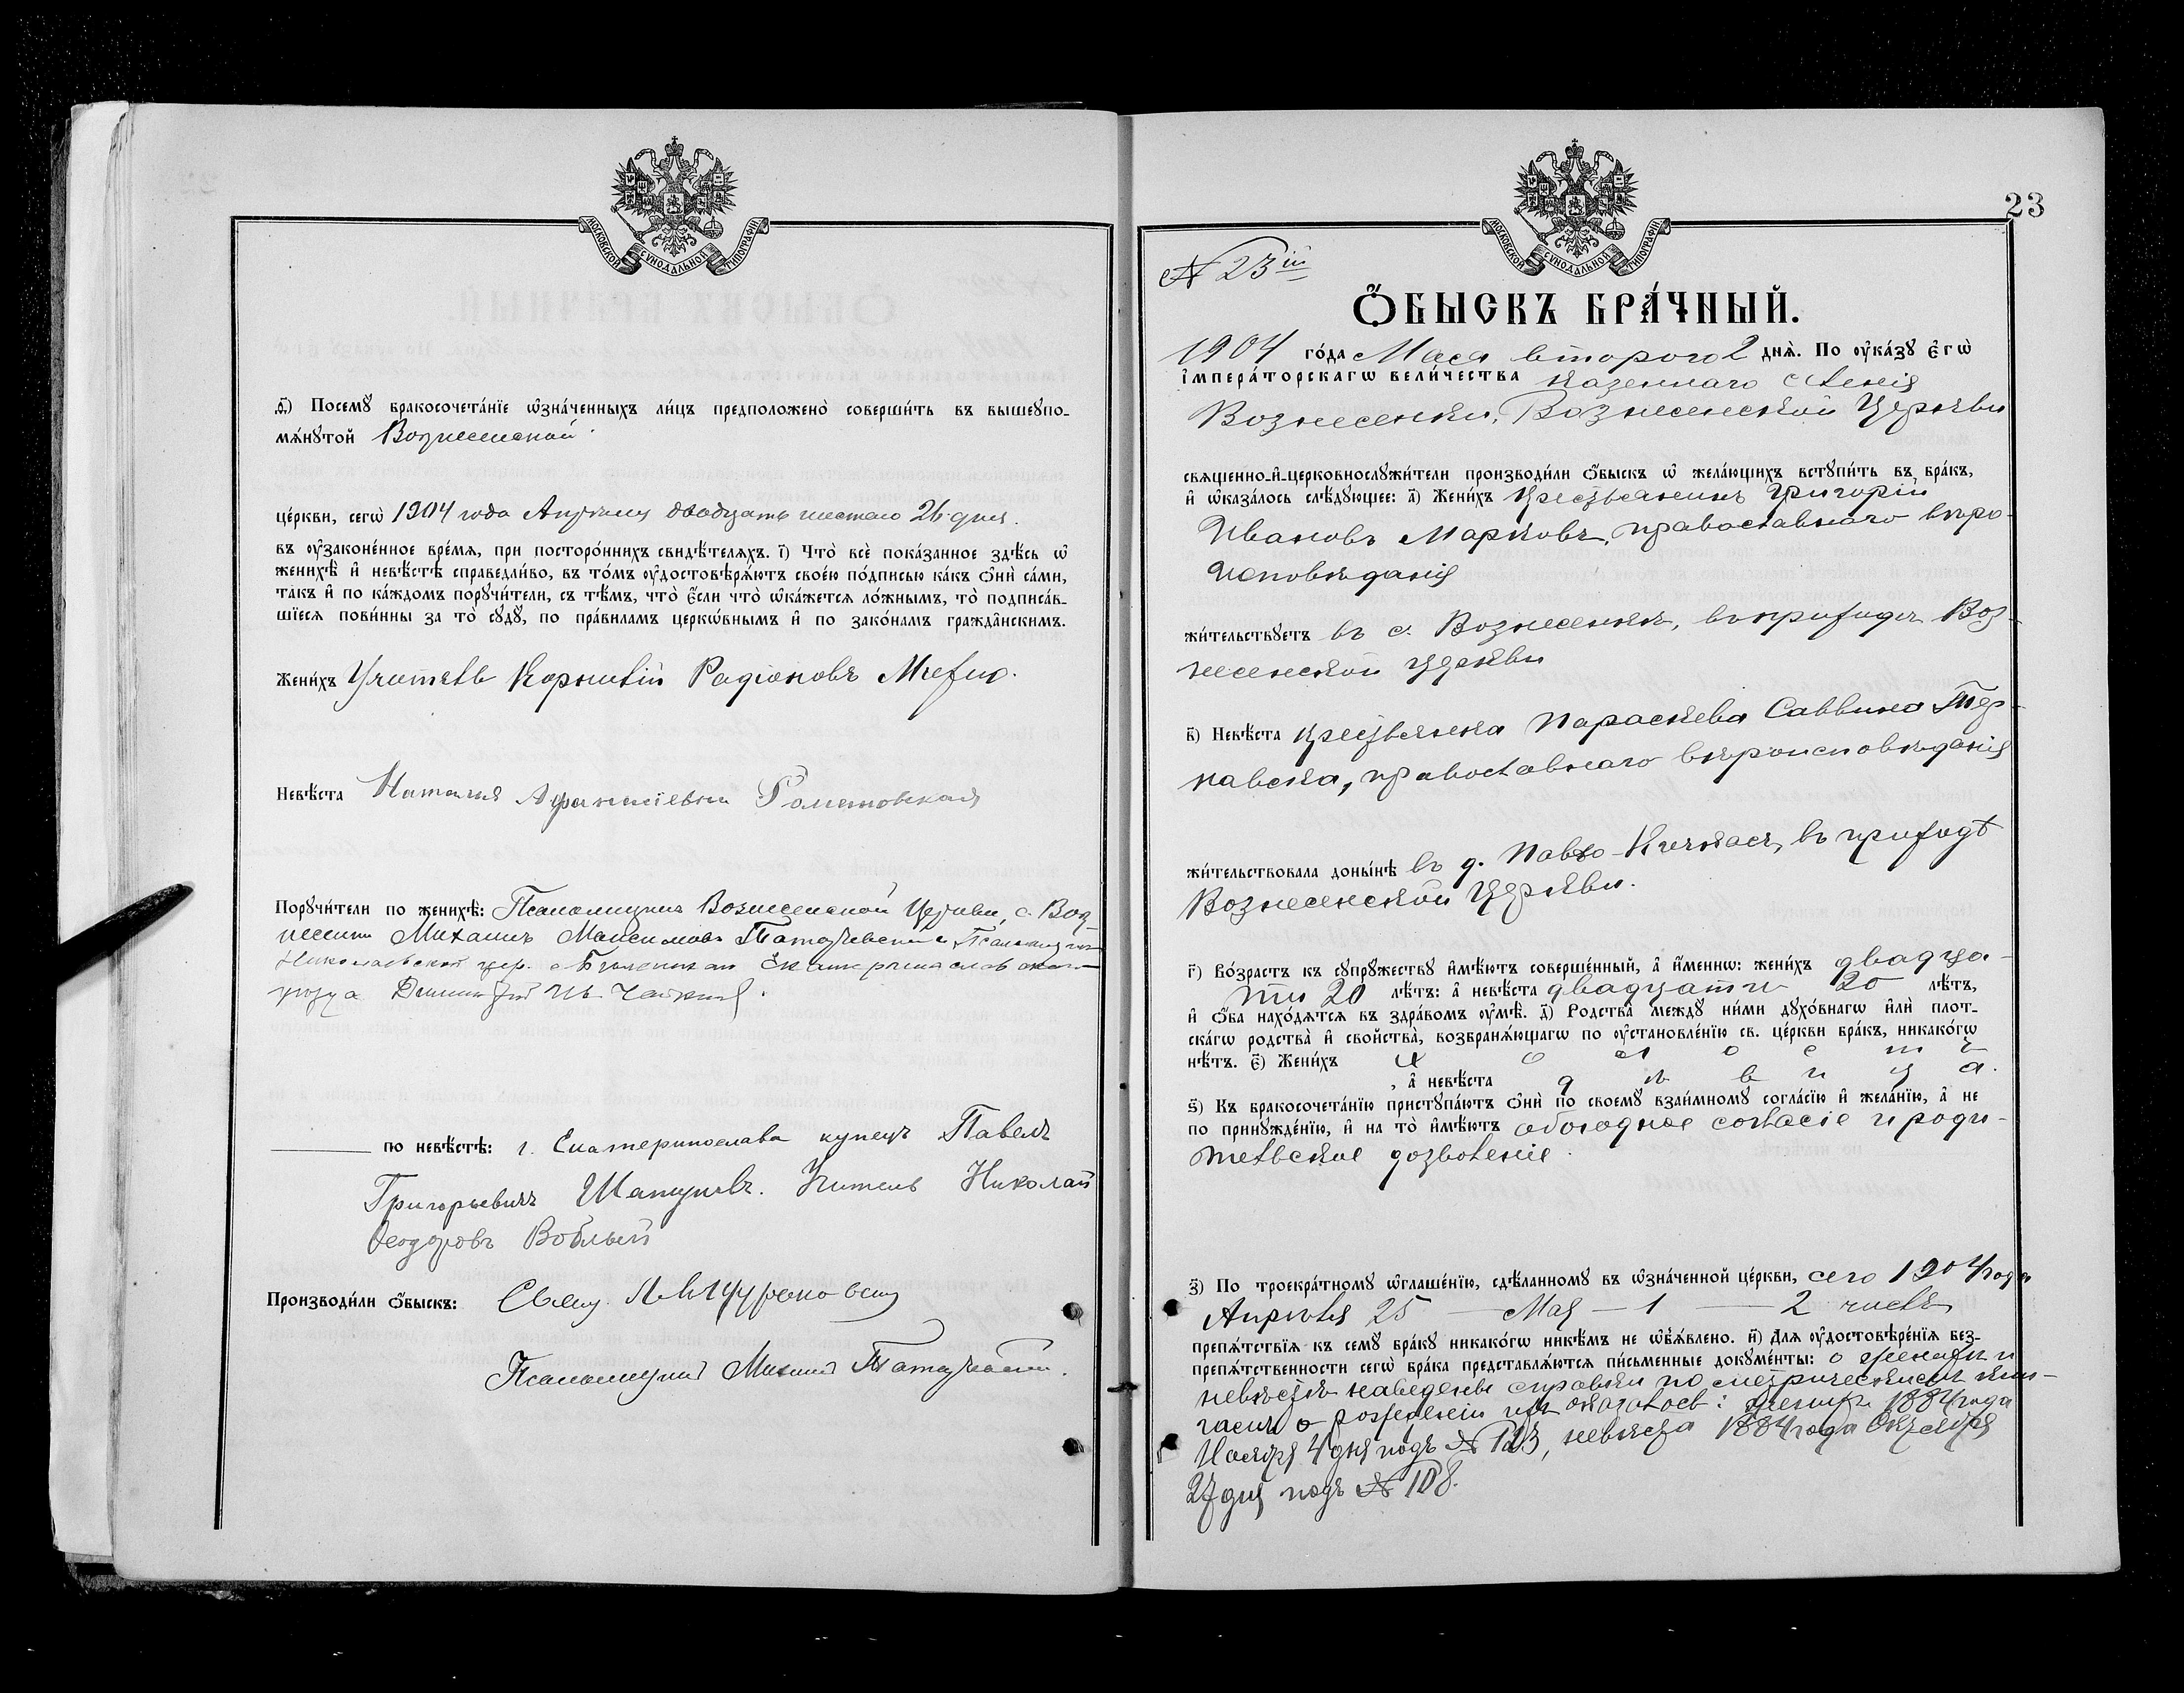 МОСКОВСКОЙ СѴНОДАЛЬНОЙ ТИПОГРАФІИ
ѳ҃) Посемꙋ̀ бракосочета́нїе ѡ҆зна́ченныхъ ли́цъ предположено̀ соверши́ть въ вышеꙋпо-
мѧ́нꙋтой Вознесенской
це́ркви, сегѡ̀ 1904 года Апрѣля двадцать шестаго 26 дня.
въ ᲂу҆законе́нное вре́мѧ, при посторо́ннихъ свидѣ́телѧхъ. і҃) Что̀ всѐ пока́занное здѣ́сь ѡ҆
женихѣ̀ и҆ невѣ́стѣ справедли́во, въ то́мъ ᲂу҆достовѣрѧ́ютъ свое́ю по́дписью ка́къ ѻ҆нѝ са́ми,
та́къ и҆ по ка́ждомъ порꙋчи́тели, съ тѣ́мъ, что̀ є҆́сли что̀ ѡ҆ка́жетсѧ ло́жнымъ, то̀ подписа́в-
шїесѧ пови́нны за то̀ сꙋдꙋ̀, по пра́виламъ церко́внымъ и҆ по зако́намъ гражда̑нскимъ.
Жени́хъ Учитель Корнилій Радіоновъ Михно.
Невѣ́ста Наталія Афанасіевна Романовская
Порꙋчи́тели по женихѣ̀: Псаломщикъ Вознесенской Церкви, с. Воз-
несенки Михаилъ Максимовъ Псаломщикъ
Николаевской цер. Екатеринославскаго
уѣзда Димитрій
по невѣ́стѣ: г. Екатеринослава купецъ Павелъ
Григорьевичъ Шатуловъ. Учитель Николай
Ѳеодоровъ Воблый
Производи́ли ѻ҆́быскъ: Свящ.
Псаломщикъ Михаилъ
23
МОСКОВСКОЙ СѴНОДАЛЬНОЙ ТИПОГРАФІИ
№ 23ій
Ѻ҆́БЫСКЪ БРА́ЧНЫЙ.
1904 го́да Мая второго 2 днѧ̀. По ᲂу҆ка́зꙋ Є҆гѡ̀
І҆мпера́торскагѡ вели́чества казеннаго селенія
Вознесенки, Вознесенской Церкви
свѧще́нно-и҆-церковнослꙋжи́тели производи́ли ѻ҆́быскъ ѡ҆ жела́ющихъ встꙋпи́ть въ бра́къ,
и҆ ѡ҆каза́лось слѣ́дꙋющее: а҃) Жени́хъ крестьянинъ Григорій
Ивановъ Марковъ, православнаго вѣро-
исповѣданія
жи́тельствꙋетъ въ с. Вознесенкѣ, въ приходѣ Воз-
несенской церкви
в҃) Невѣ́ста крестьянка Параскева Саввина Тер-
навска, православнаго вѣроисповѣданія
жи́тельствовала доны́нѣ въ д. Павло-Кичкасѣ, въ приходѣ
Вознесенской Церкви.
г҃) Во́зрастъ къ сꙋпрꙋ́жествꙋ и҆мѣ́ютъ соверше́нный, а҆ и҆́меннѡ: жени́хъ двадца-
ти 20 лѣ́тъ: а҆ невѣ́ста двадцати 20 лѣ́тъ,
и҆ ѻ҆́ба нахо́дѧтсѧ въ здра́вомъ ᲂу҆мѣ̀. д҃) Родства̀ междꙋ ни́ми дꙋхо́внагѡ и҆лѝ плот-
ска́гѡ родства̀ и҆ сво́йства, возбранѧ́ющагѡ по ᲂу҆становле́нїю св. це́ркви бра́къ, никако́гѡ
нѣ́тъ. є҃) Жени́хъ х о л о с т ъ
, а҆ невѣ́ста д ѣ в и ц а.
ѕ҃) Къ бракосочета́нїю пристꙋпа́ютъ ѻ҆нѝ по своемꙋ̀ взаи́мномꙋ согла́сїю и҆ жела́нїю, а҆ не
по принꙋжде́нїю, и҆ на то̀ и҆мѣ́ютъ обоюдное согласіе и роди-
тельское дозволеніе.
з҃) По троекра́тномꙋ ѡ҆глаше́нїю, сдѣ́ланномꙋ въ ѡ҆зна́ченной це́ркви, сего 1904 года
Апрѣля 25 — Мая — 1 — 2 числъ
препѧ́тствїѧ къ семꙋ̀ бра́кꙋ никако́гѡ никѣ́мъ не ѡ҆б̾ѧ́влено. и҃) Длѧ ᲂу҆достовѣре́нїѧ без-
препѧ́тственности сегѡ̀ бра́ка представлѧ́ютсѧ пи́сьменные докꙋме́нты: о женихѣ и
невѣстѣ наведены справки по метрическимъ кни-
гамъ о рожденіи ихъ оказалось: женихъ 1884 года
Ноября 4 дня подъ № 123, невѣста 1884 года Октября
27 дня подъ № 108.